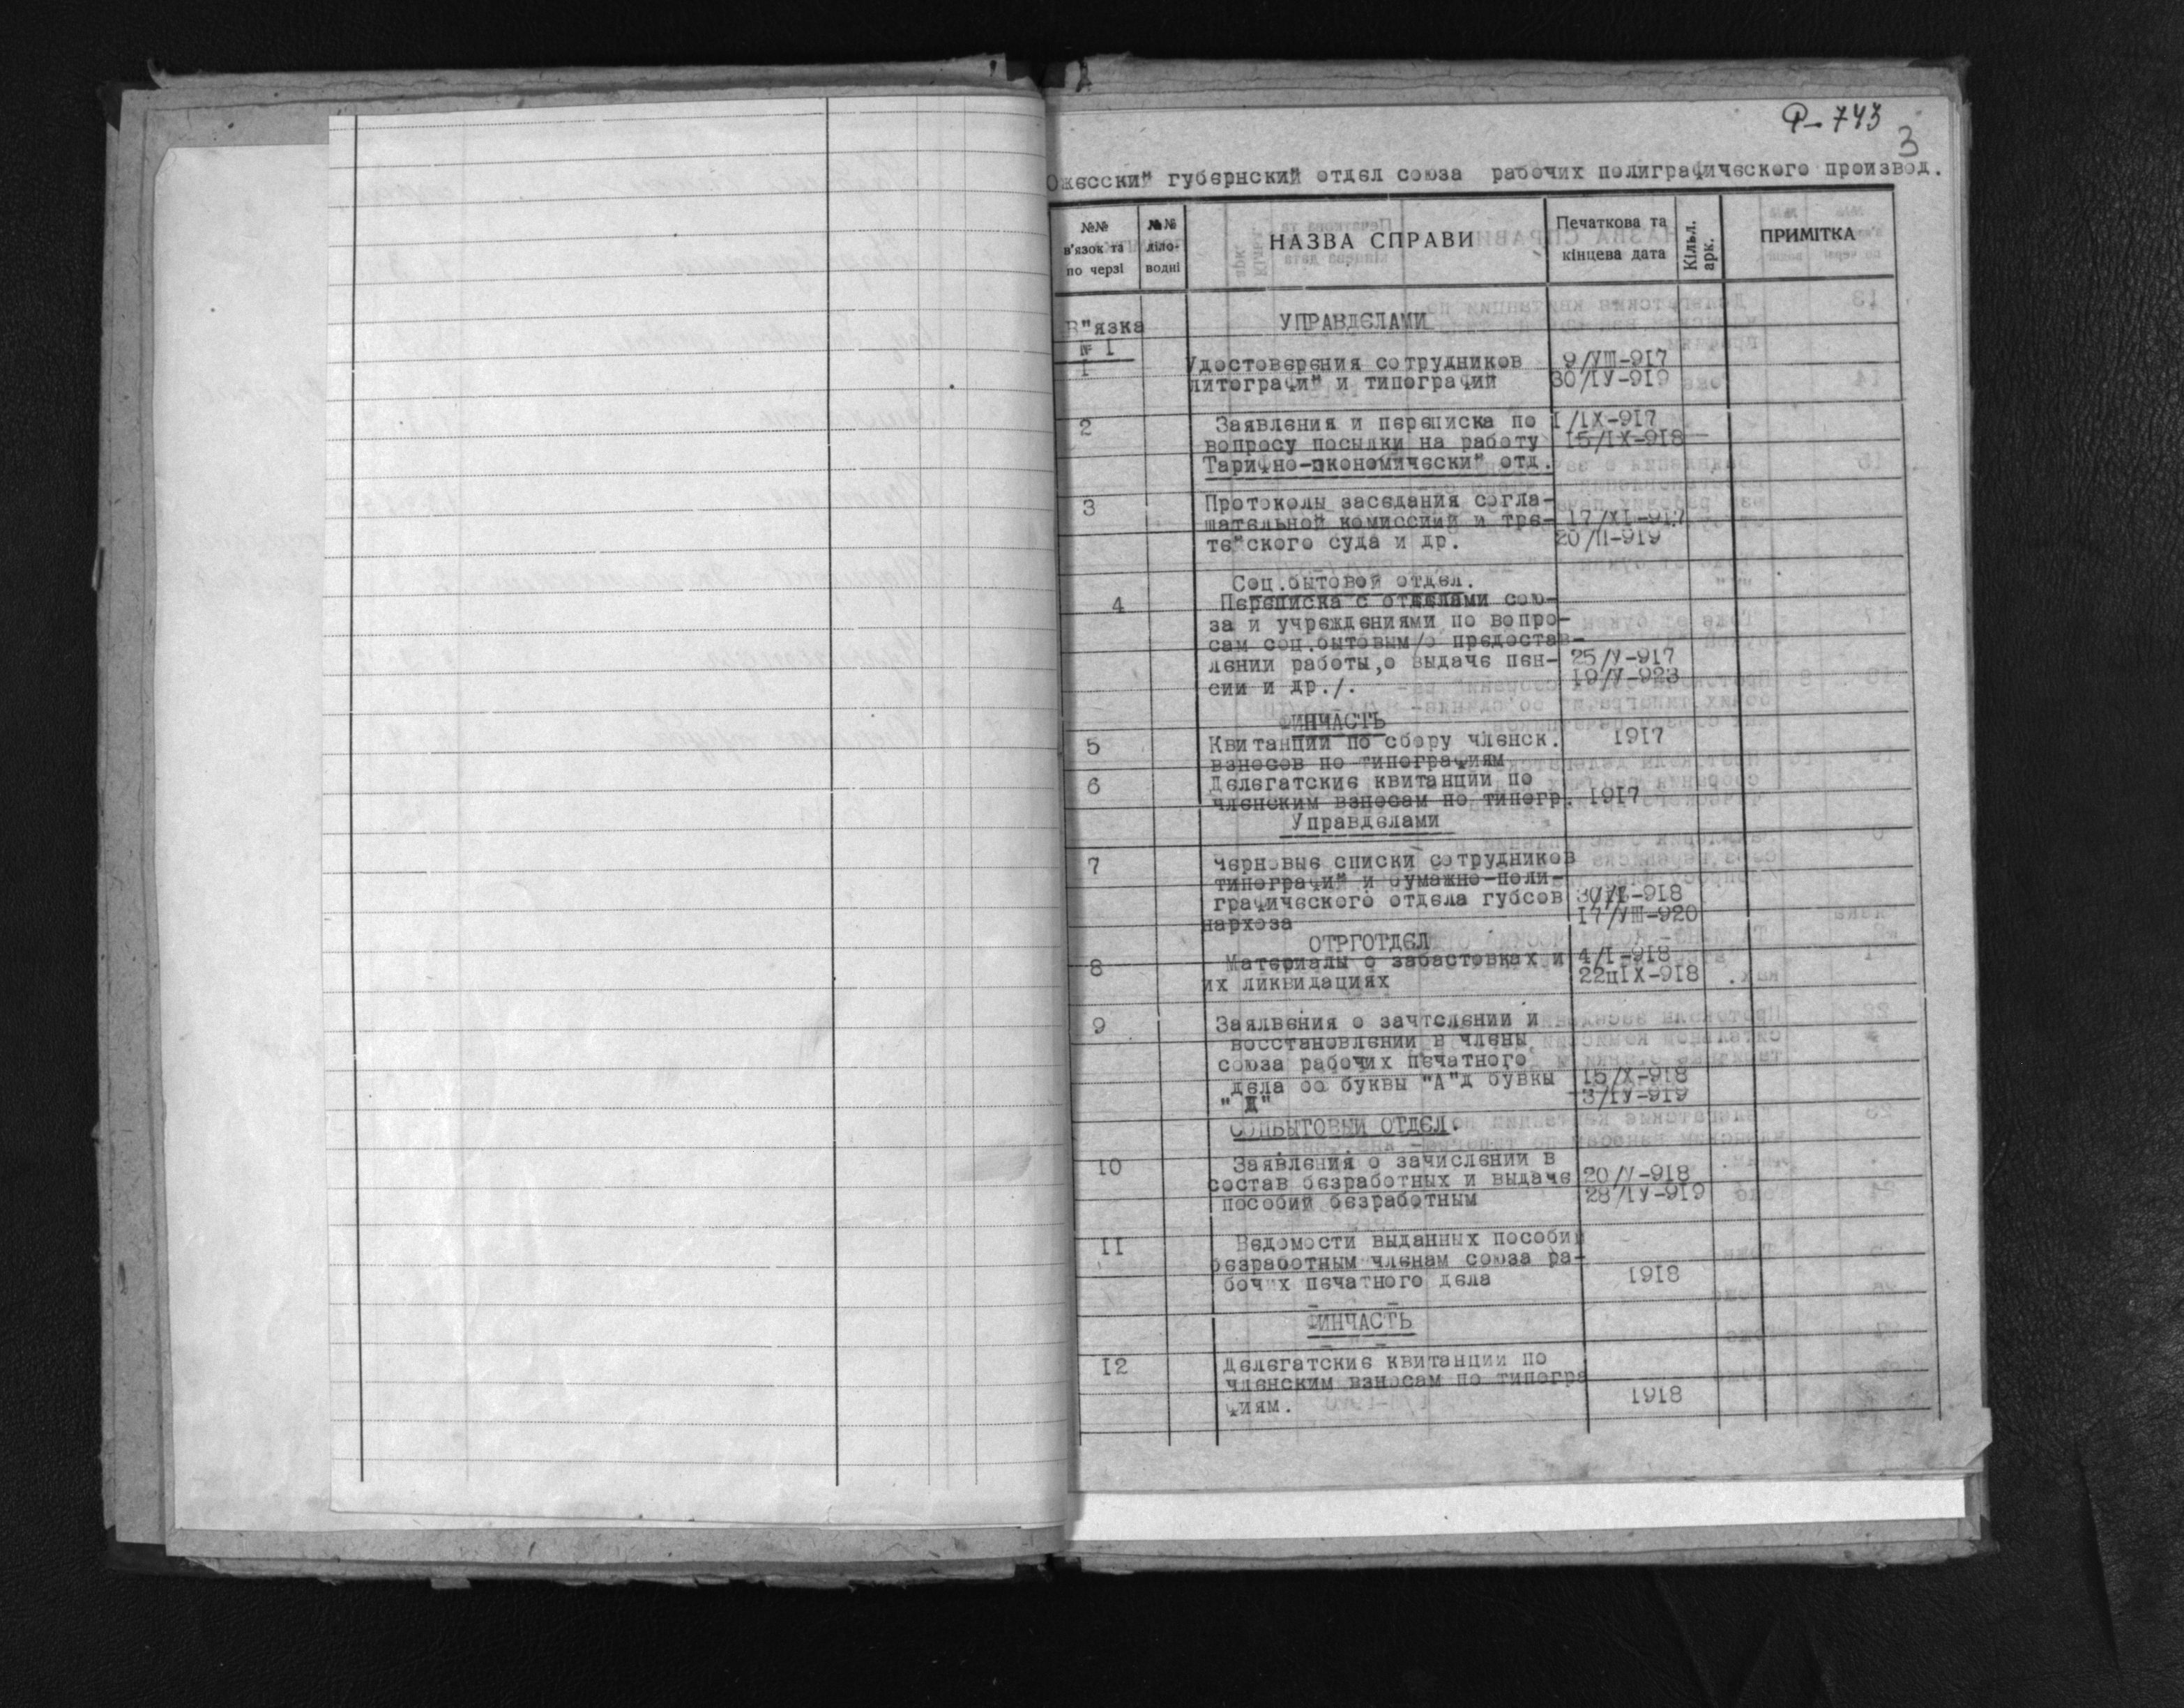 Р-743
3
Ожесский губернский отдел союза рабочих полиграфического производ.
№№ в'язок та по черзі
№№ діло-водні
НАЗВА СПРАВИ
Печаткова та кінцева дата
Кільк. арк.
ПРИМІТКА
В"язка
УПРАВДЕЛАМИ
№ I
I Удостоверения сотрудников 9/УШ-917
литографи" и типографий 30/IУ-919
2 Заявления и переписка по I/IX-917
вопросу посылки на работу 15/IX-918
Тарифно-экономически" отд.
3 Протоколы заседания согла-
шательной комиссией и тре- 17/XI-917
те"ского суда и др. 20/П-919
Соц.бытовой отдел.
4 Переписка с отделами сою-
за и учреждениями по вопро-
сам соц.бытовым/о предостав-
лении работы,о выдаче пен- 25/У-917
сии и др./. 19/У-923
ФИНЧАСТЬ
5 Квитанции по сбору членск. 1917
взносов по типографиям
6 Делегатские квитанции по
членским взносам по типогр. 1917
Управделами
7 Черновые списки сотрудников
типографи" и бумажно-поли-
графического отдела губсов 30/ -918
нархоза 17/УШ-920
ОТРГОТДЕЛ
8 Материалы о забастовках и 4/I-918
их ликвидациях 22пIX-918
9 Заялвения о зачтслении и
восстановлении в члены
союза рабочих печатного
дела со буквы "А"д бувкы 15/X-918
"Д" 3/IУ-919
СОЦБЫТОВЫЙ ОТДЕЛ.
10 Заявления о зачислении в
состав безработных и выдаче 20/У-918
пособий безработным 28/IУ-919
II Ведомости выданных пособий
безработным членам союза ра-
бочих печатного дела 1918
ФИНЧАСТЬ
12 Делегатские квитанции по
членским взносам по типогра
фиям. 1918